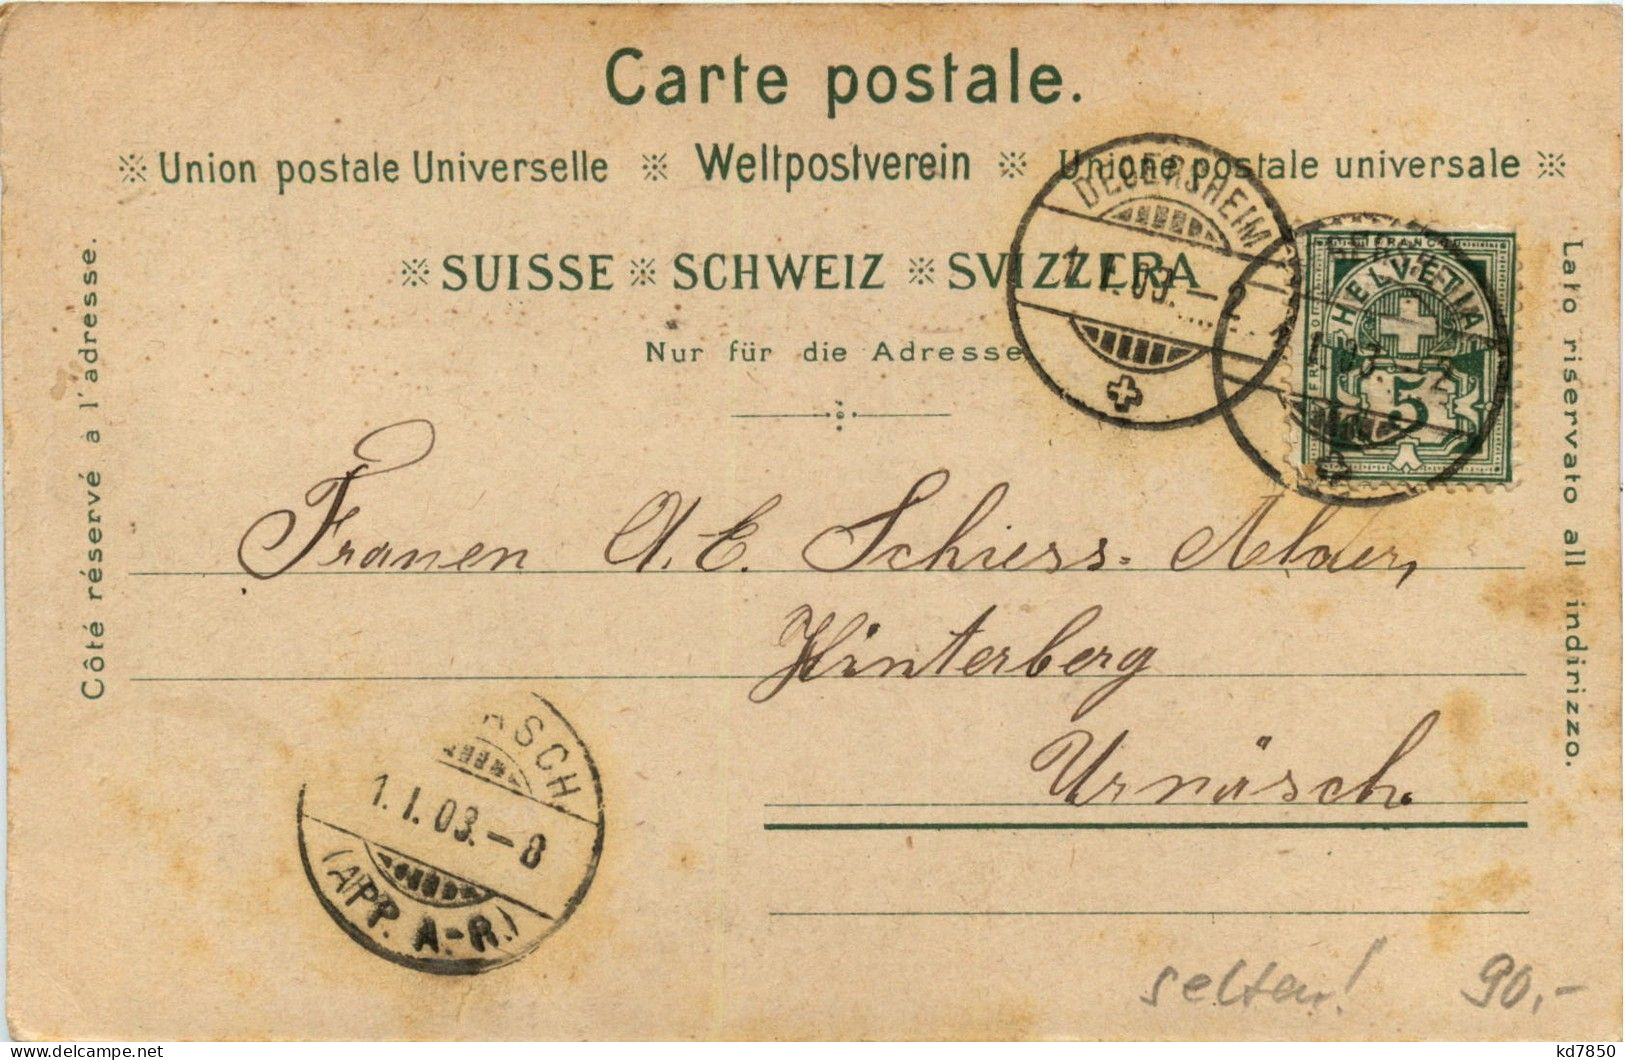 Carte postale.
※ Union postale Universelle ※ Weltpostverein ※ Unione postale universale ※
※ SUISSE ※ SCHWEIZ ※ SVIZZERA
Nur für die Adresse
Côté réservé à l'adresse.
Lato riservato all indirizzo.
DEGERSHEIM
1.I.03.–2
FRANCO
HELVETIA
5
Frauen A. E. Schiess-Alder,
Hinterberg
Urnäsch.
ÄSCH.
1.I.03.–8
(APP. A.-R.)
selten! 90,-
kd7850